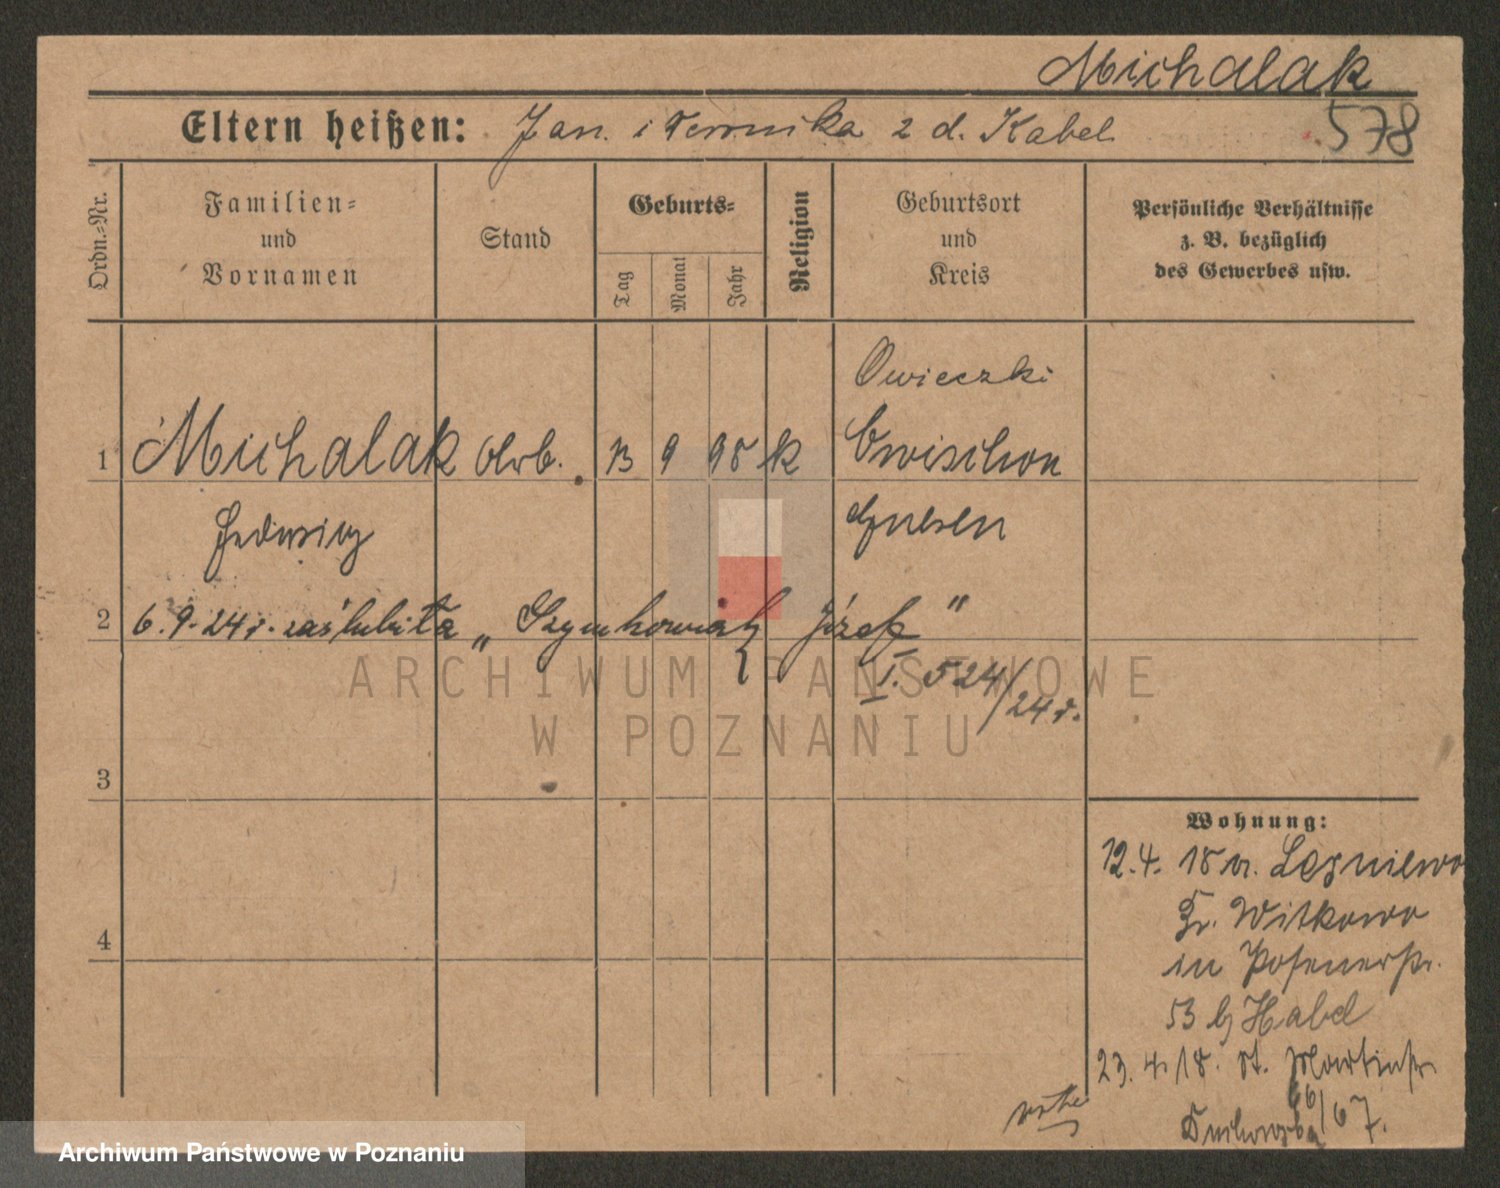 Michalak
578
Eltern heißen: Jan i Weronika z d. Kabel
Ordn.-Nr.
Familien-
und
Vornamen
Stand
Geburts-
Tag
Monat
Jahr
Religion
Geburtsort
und
Kreis
Persönliche Verhältnisse
z. B. bezüglich
des Gewerbes usw.
Owieczki
1 Michalak Arb. 13 9 98 k
Hedwig
Gnesen
2 6.9.24r. zaślubiła „Szymkowiak Józef"
I. 524/24r.
ARCHIWUM PAŃSTWOWE
W POZNANIU
3
4
Wohnung:
12.4. 18 v. Lesniewo
Kr. Witkowo
in Posenerstr.
53 b/ Habel
23.4.18. St. Martinstr.
66/67.
Archiwum Państwowe w Poznaniu